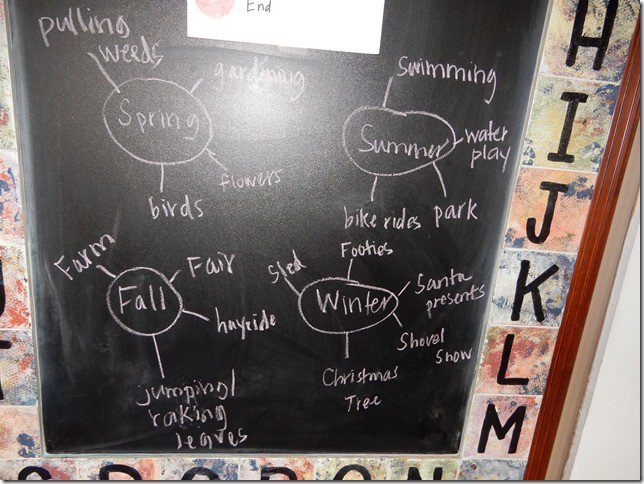 End
pulling
weeds
gardening
Spring
flowers
birds
Swimming
Summer
water
play
bike rides
park
Farm
Fair
Fall
hayride
jumping/
raking
leaves
Footies
Sled
Winter
Santa
presents
Shovel
Snow
Christmas
Tree
H
I
J
K
L
M